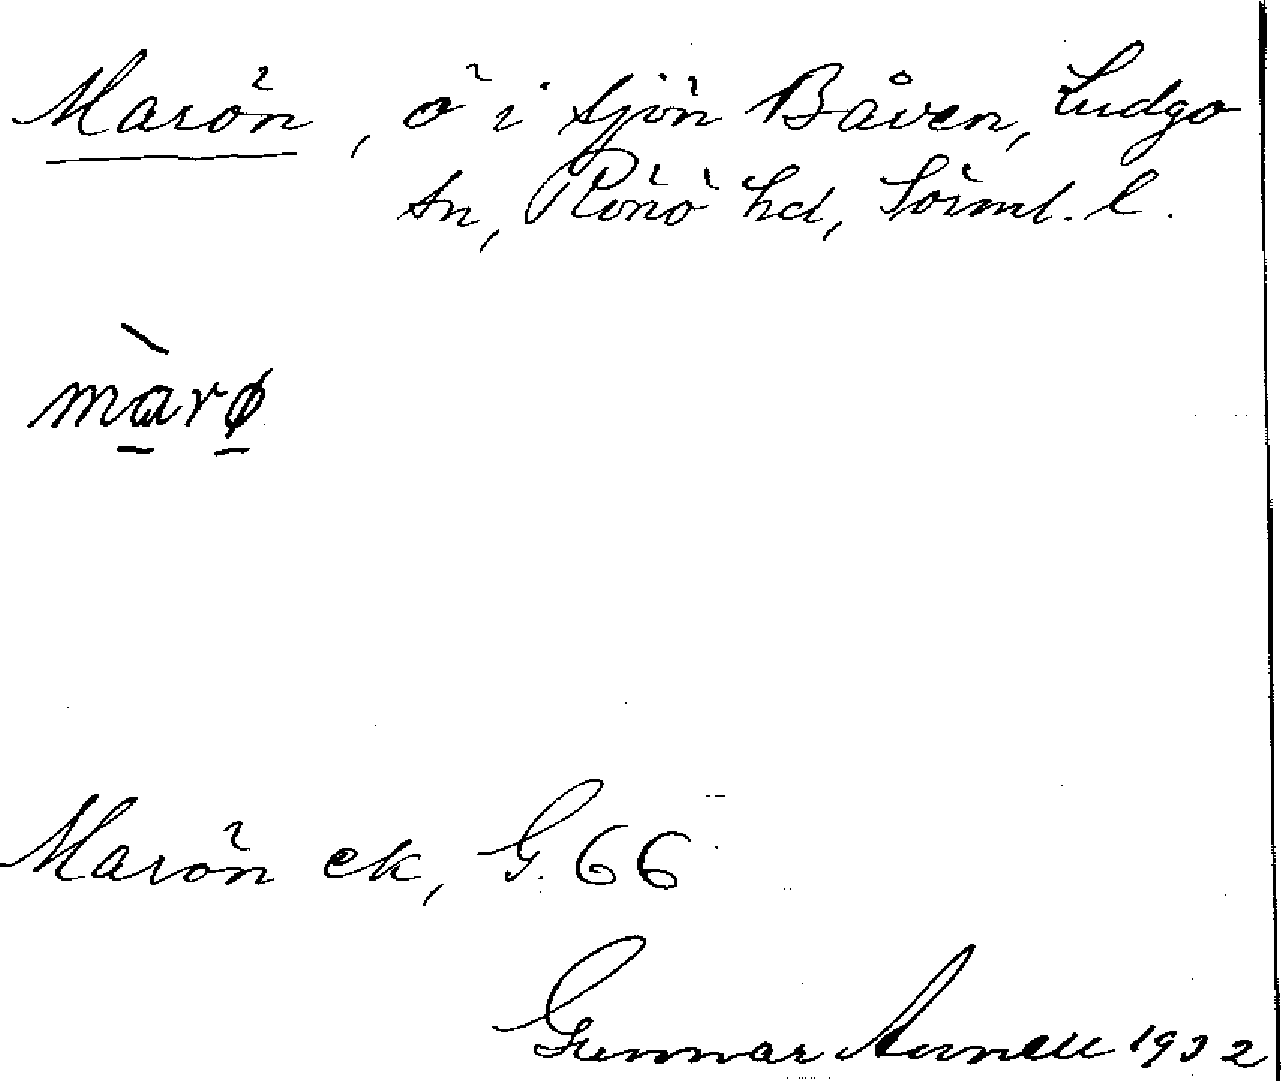 Marön, ö i sjön Båven, Ludgo
sn, Rönö hd, Sörml. l.
màrø
Marön ek, G. 66
Gunnar Arnell 1932